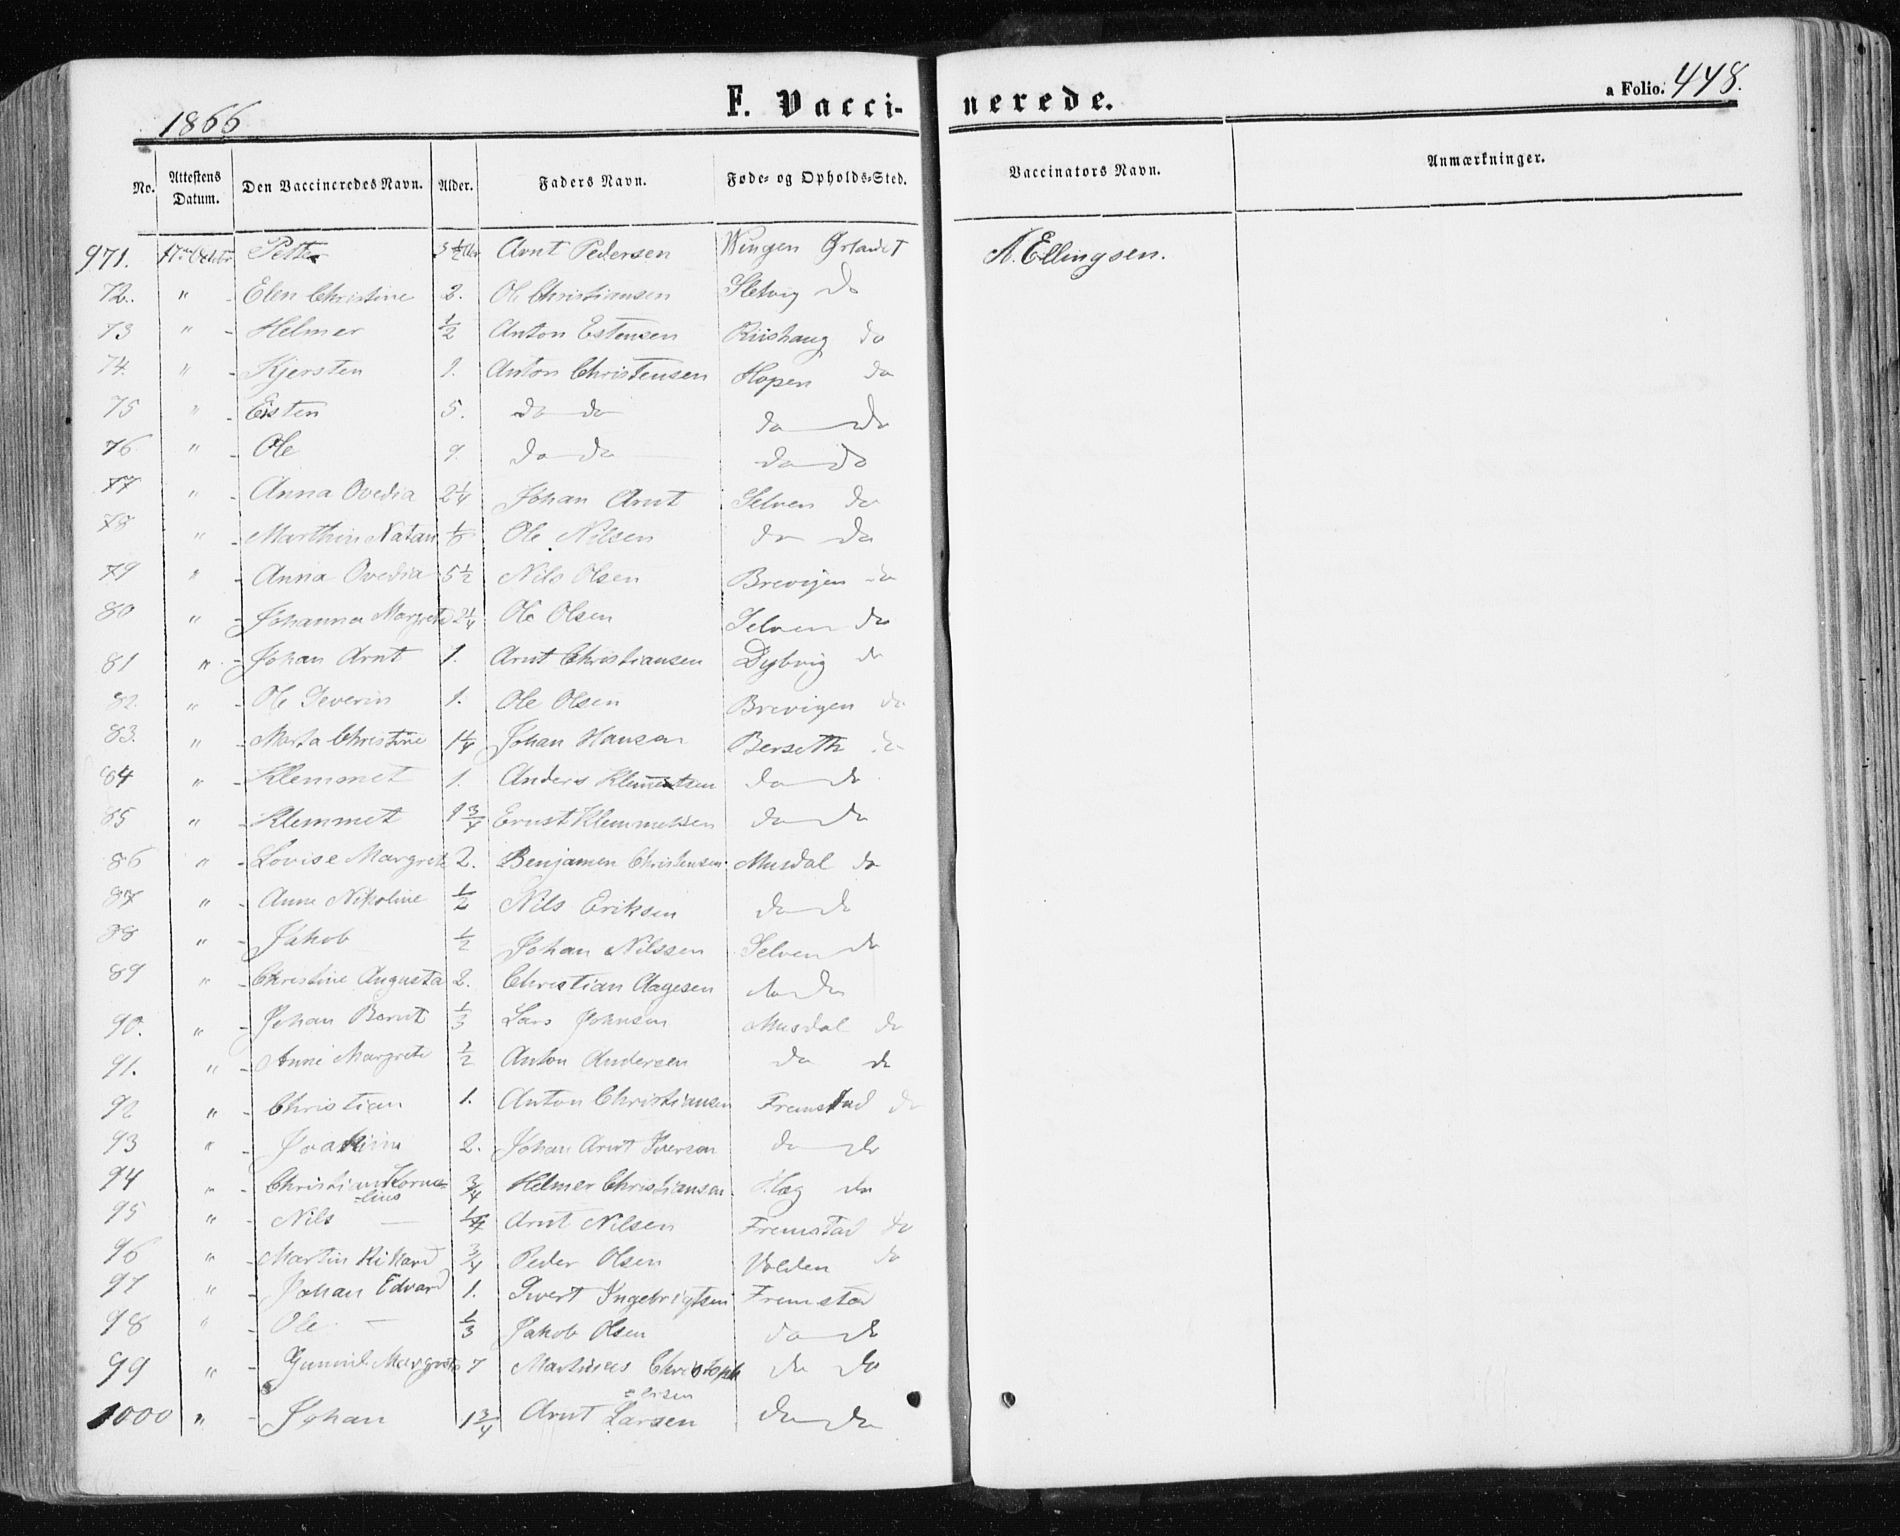 1866 F. Vacci- nerede. a Folio. 448.
No. Attestens Datum. Den Vaccineredes Navn. Alder. Faders Navn. Føde- og Opholds-Sted. Vaccinators Navn. Anmærkninger.
971. Petter 3 1/2 Arnt Pedersen Wingen Ørlandet A. Ellingsen.
72. " - Elen Christine 2. Ole Christiansen Sletvig do
73 " - Helmer 1/2 Anton Estensen Riishaug do
74. " - Kjersten 1. Anton Christensen Hopen do
75 " - Esten 5. do do do do
76. " - Ole 9. do do do do
77 " - Anna Ovedia 2 1/4 Johan Arnt Selven do
78 " - Marthin Natan Ole Nilsen do do
79 " - Anna Ovedia 5 1/2 Nils Olsen Brevigen do
80 " - Johanna Margrete 2 1/4 Ole Olsen Selven do
81 " - Johan Arnt 1. Arnt Christiansen Dybvig do
82. " - Ole Severin 1. Ole Olsen Brevigen do
83. " - Marta Christine 1 1/4 Johan Hansen Berseth do
84 " - Klemmet 1. Anders Klemmetsen do do
85 " - Klemmet 1 3/4 Ernst Klemmetsen do do
86 " - Lovise Margrete 2. Benjamen Christensen Musdal do
87 " - Anne Nikoline 1/2 Nils Eriksen do do
88 " - Jakob 1/2 Johan Nilssen Selven do
89 " - Christine Augusta 2. Christian Aagesen do do
90. " - Johan Bernt 1/3 Lars Johnsen Musdal do
91. " - Anne Margrete 1/2 Anton Andersen do do
92 " - Christian 1. Anton Christiansen Fremstad do
93 " - Joakim 2. Johan Arnt Iversen do do
94 " - Christian Korne- 3/4 Helmer Christiansen. Hæg do
-lius
95 " - Nils — 1/4 Arnt Nilsen Fremstad do
96 " - Martin Rikard 3/4 Peder Olsen Volden do
97 " - Johan Edvard 1. Sivert Ingebrigtsen Fremstad
98 " - Ole — 1/3 Jakob Olsen do do
99 " - Gunnil Margrete 7 Martinus Christoph do do
=ersen
1000 " - Johan 1 3/4 Arnt Larsen do do